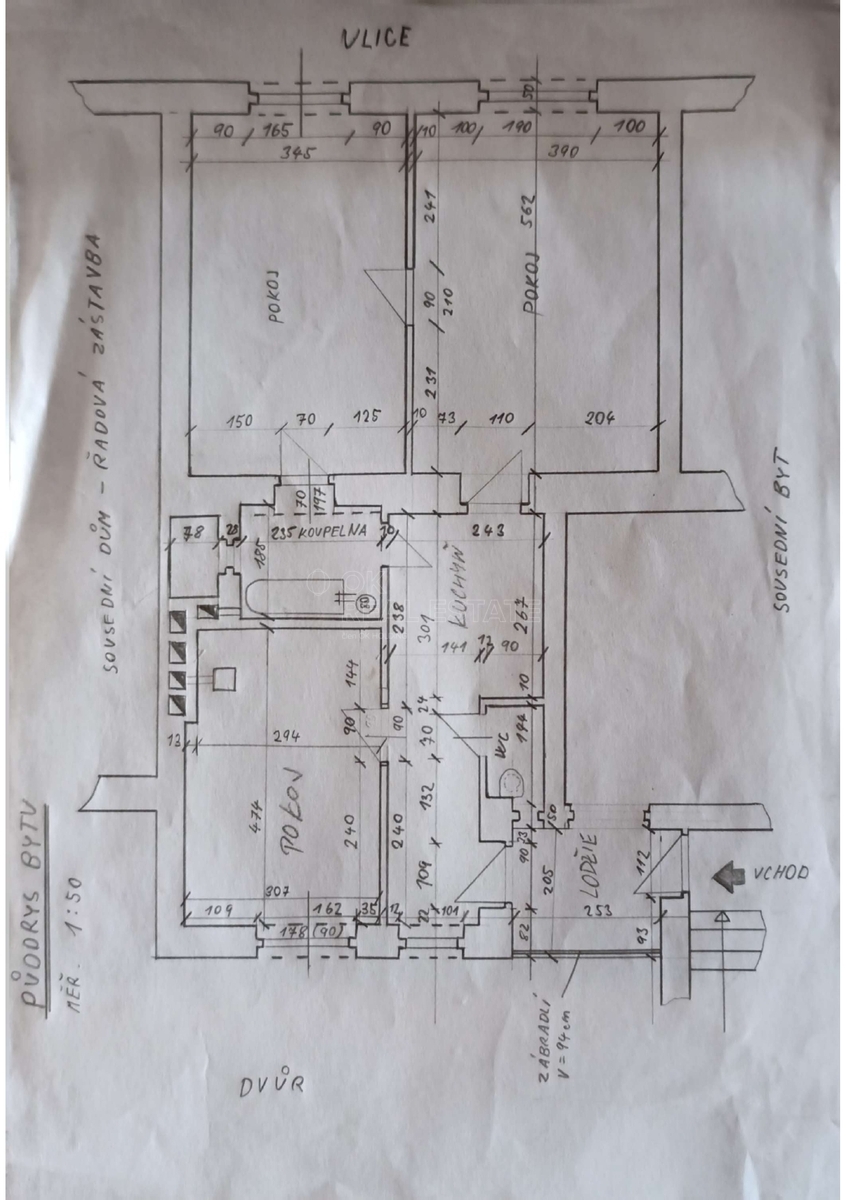 VLICE
50
90 165 90 10 100 190 100
345 390
241
562
POKOJ
POKOJ
90
210
231
150 70 125 10 73 110 204
70
197
78 28 235 KOUPELNA 10 243
185
KUCHYŇ
238
301
267
141 12 90
10
144
24
90
90
70
WC
144
13 294
474
POKOJ
240
240
132
150
23
90
109
205
LODŽIE
112
VCHOD
307
109 162 35 12 22 101
178 (90)
82
253
93
ZÁBRADLÍ
V = 94cm
DVŮR
SOUSEDNÍ DŮM - ŘADOVÁ ZÁSTAVBA
SOUSEDNÍ BYT
PŮDORYS BYTU
MĚŘ. 1:50